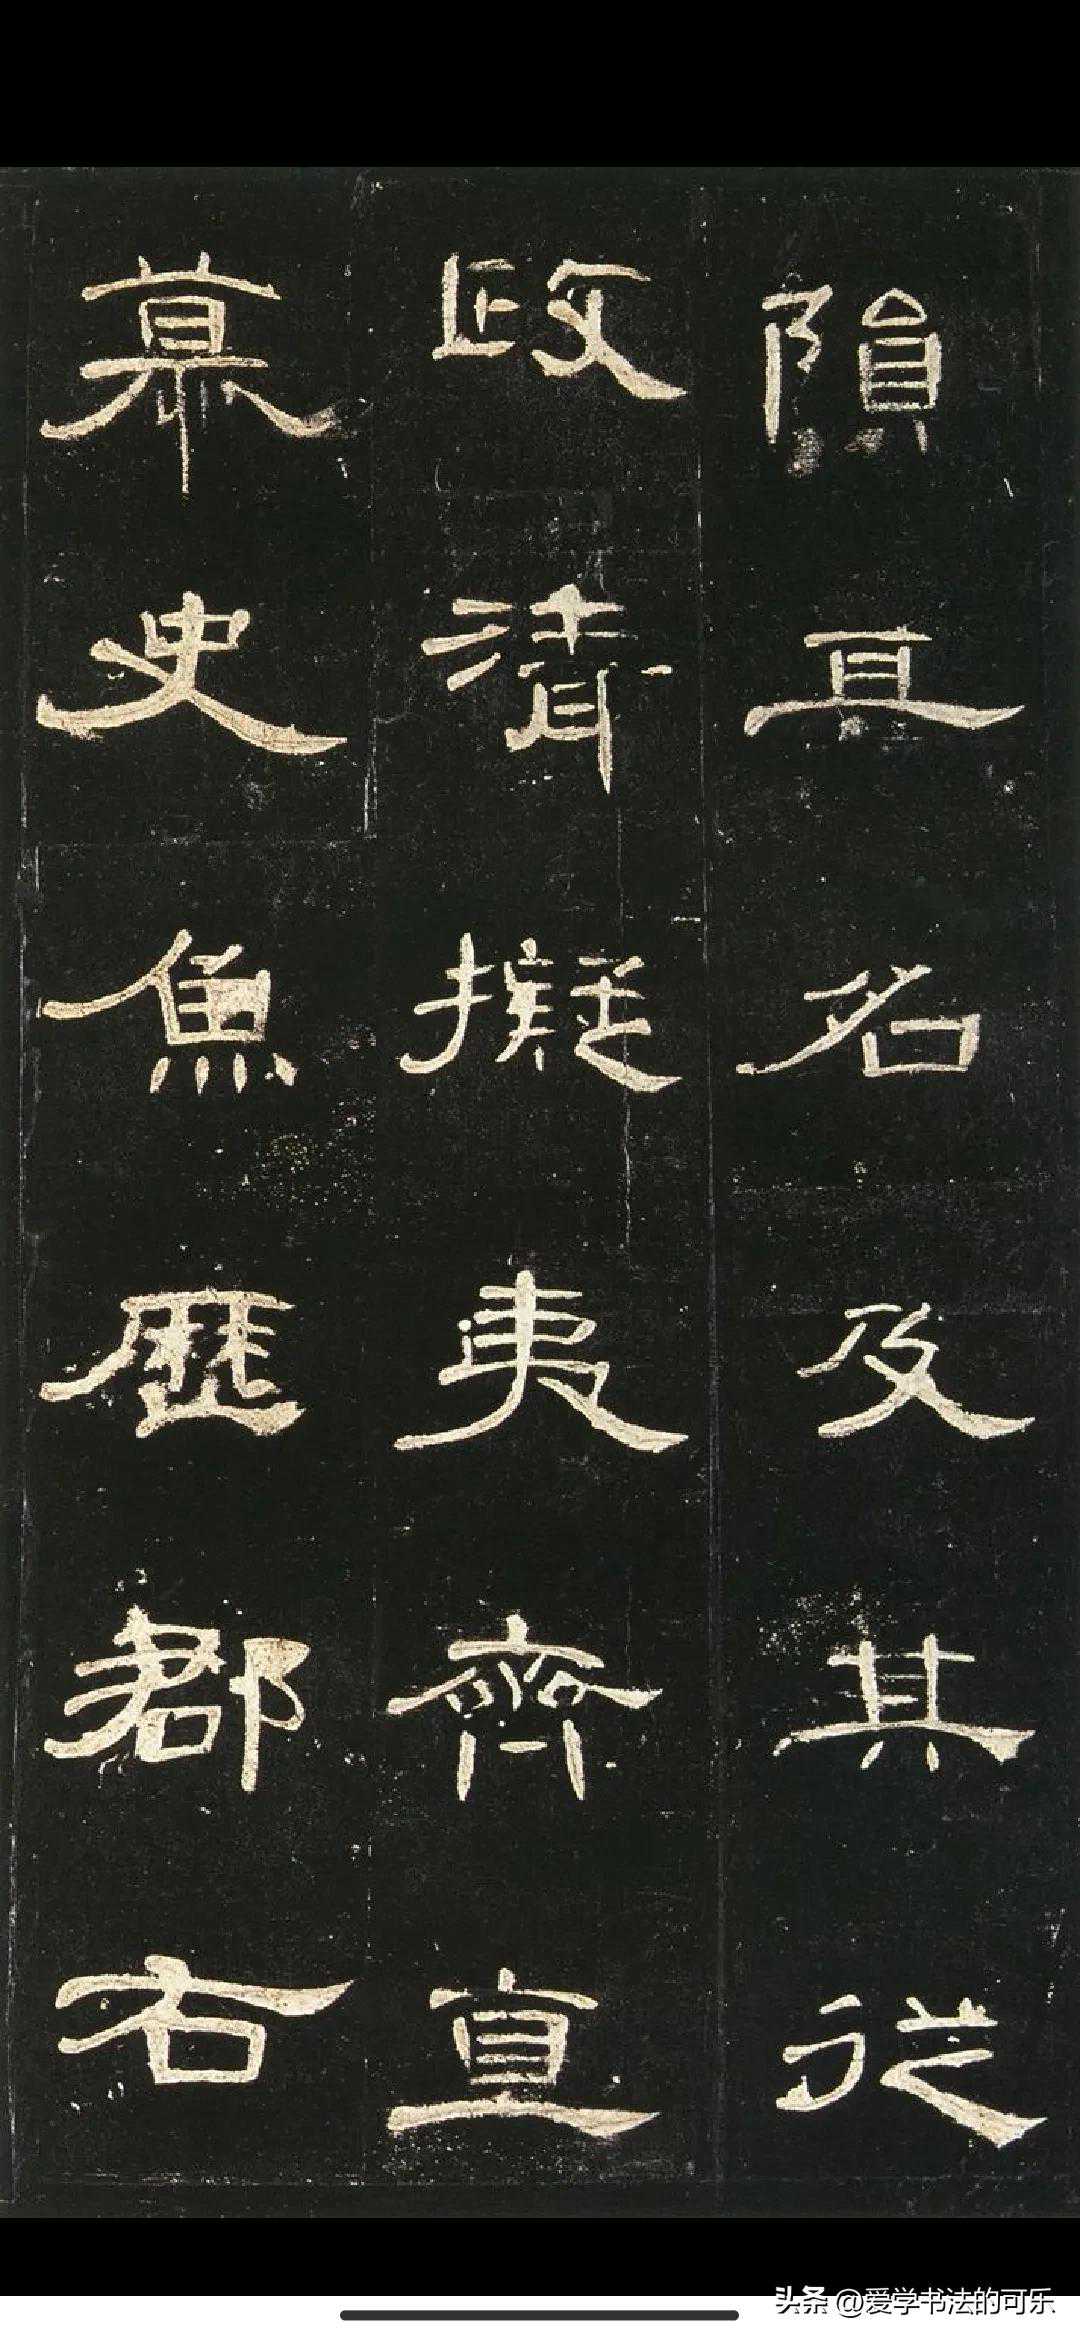 隕亘名及其從
政清擬夷齊直
慕史魚歷郡右
头条 @爱学书法的可乐